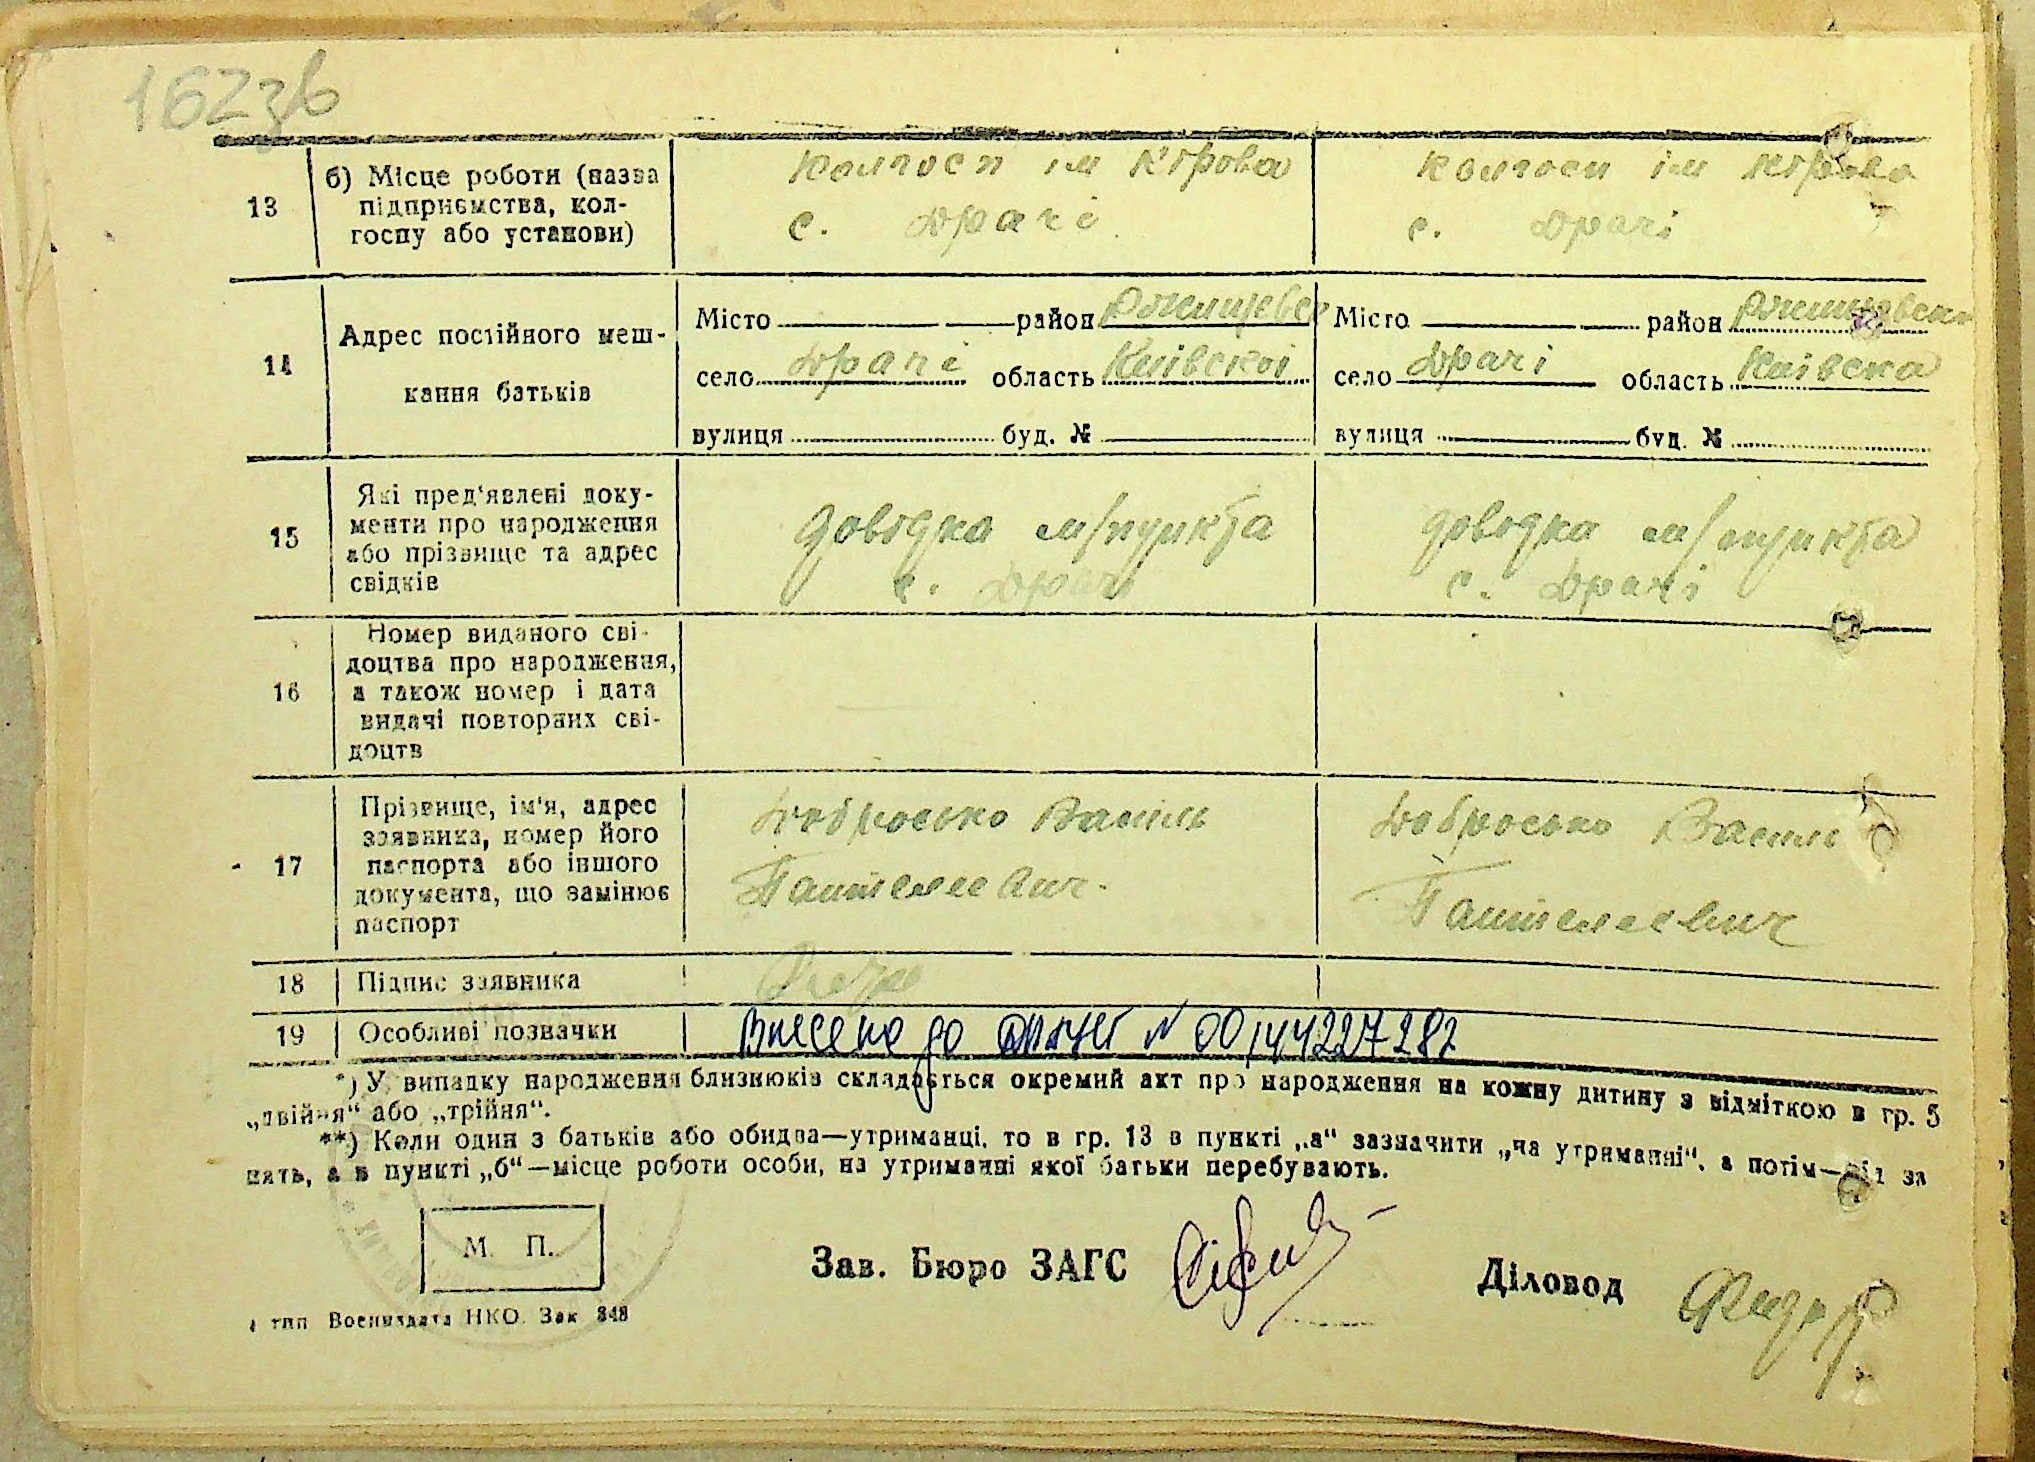 162зв
13 б) Місце роботи (назва колгосп ім Кірова колгосп ім Кірова
підприємства, кол-
госпу або установи) с. Драчі с. Драчі
Місто район Ржищевск Місто район Ржищевска
14 Адрес постійного меш-
село Драчі область Київскої село Драчі область Київска
кання батьків
вулиця буд. № вулиця буд. №
15 Які пред'явлені доку-
менти про народження довідка м/пункта довідка м/пункта
або прізвище та адрес с. Драчі с. Драчі
свідків
Номер виданого сві-
доцтва про народження,
16 а також номер і дата
видачі повторних сві-
доцтв
Прізвище, ім'я, адрес Добросько Василь Добросько Василь
заявника, номер його
17 паспорта або іншого Пантелеевич. Пантелеевич
документа, що замінює
паспорт
18 Підпис заявника
19 Особливі позначки Внесено до ДРАЦСГ № 00144227282
*) У випадку народження близнюків складається окремий акт про народження на кожну дитину з відміткою в гр. 5
„двійня“ або „трійня“.
**) Коли один з батьків або обидва—утриманці, то в гр. 13 в пункті „а“ зазначити „на утриманні“, а потім— за
нять, а в пункті „б“—місце роботи особи, на утриманні якої батьки перебувають.
М. П.
Зав. Бюро ЗАГС Діловод
тип Воениздата НКО. Зак 848